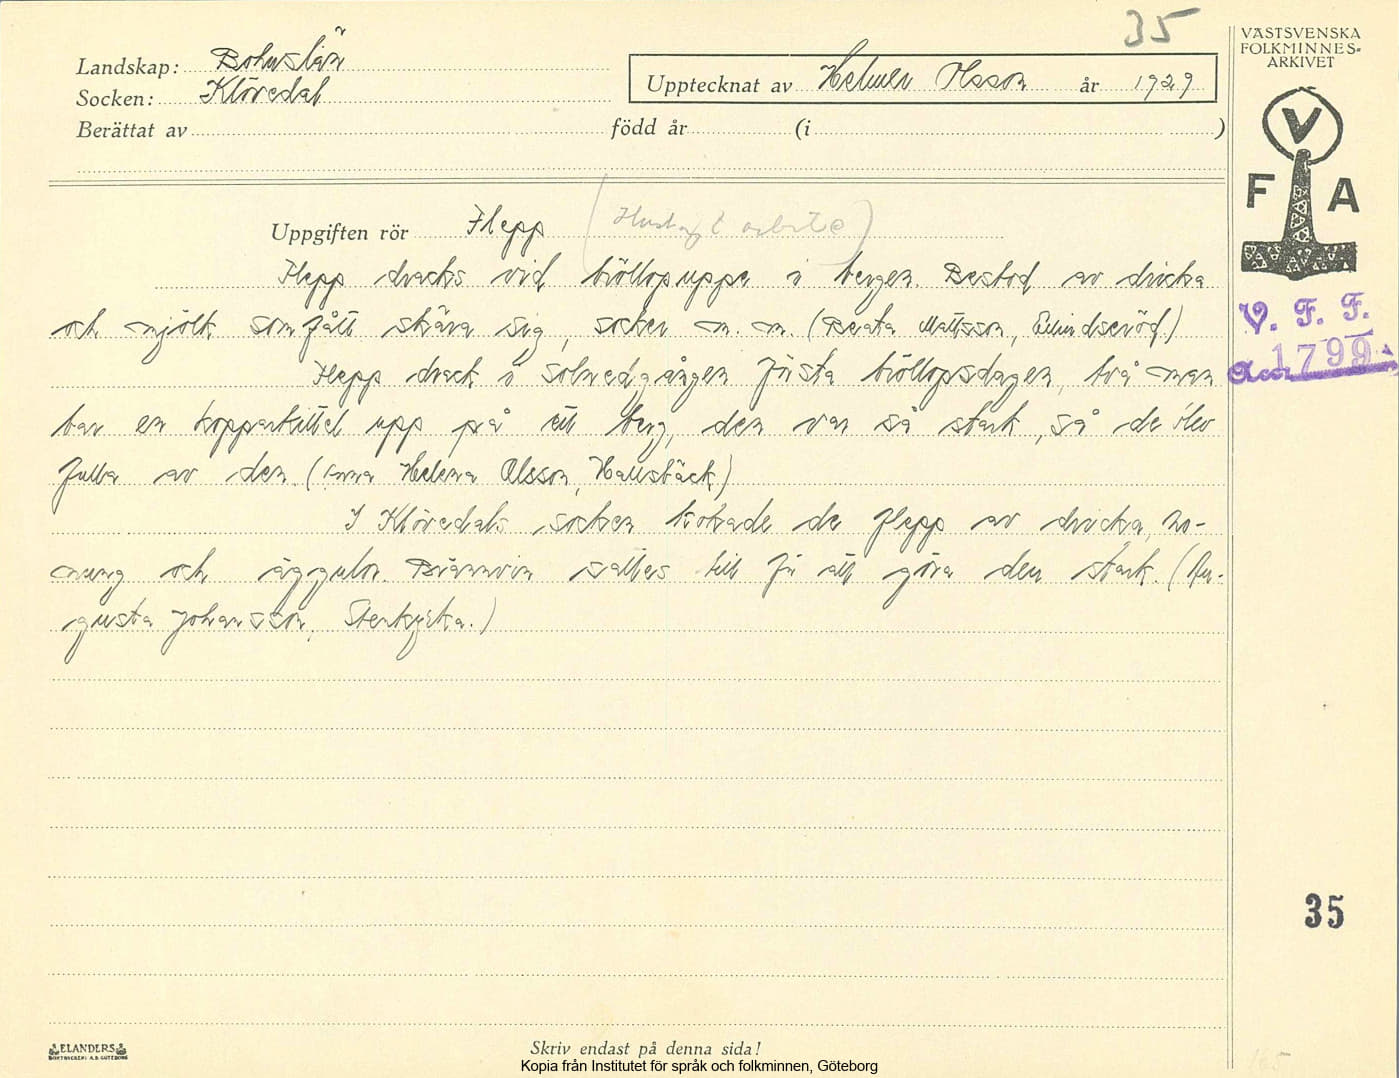 35
VÄSTSVENSKA
FOLKMINNES-
ARKIVET
Landskap: Bohuslän
Socken: Klövedal
Upptecknat av Helmer Olsson år 1929
Berättat av född år (i )
V
F A
Uppgiften rör Flepp
Flepp dracks vid bröllop uppe i bergen. Bestod av dricka
och mjölk som fått skära sig, socker m. m. (Beata Mattsson,
Flepp drack i solnedgången första bröllopsdagen, två man
bar en kopparkittel upp på ett berg, den var så stark, så de blev
fulla av den. (Anna Helena Olsson, Hallsbäck)
I Klövedals socken kokade de flepp av dricka, ho-
nung och äggulor. Brännvin sattes till för att göra den stark. (Au-
gusta Johansson, Stenkyrka.)
V. F. F.
Acc. 1799
35
ELANDERS
BOKTRYCKERI A.B. GÖTEBORG
Skriv endast på denna sida!
Kopia från Institutet för språk och folkminnen, Göteborg
165